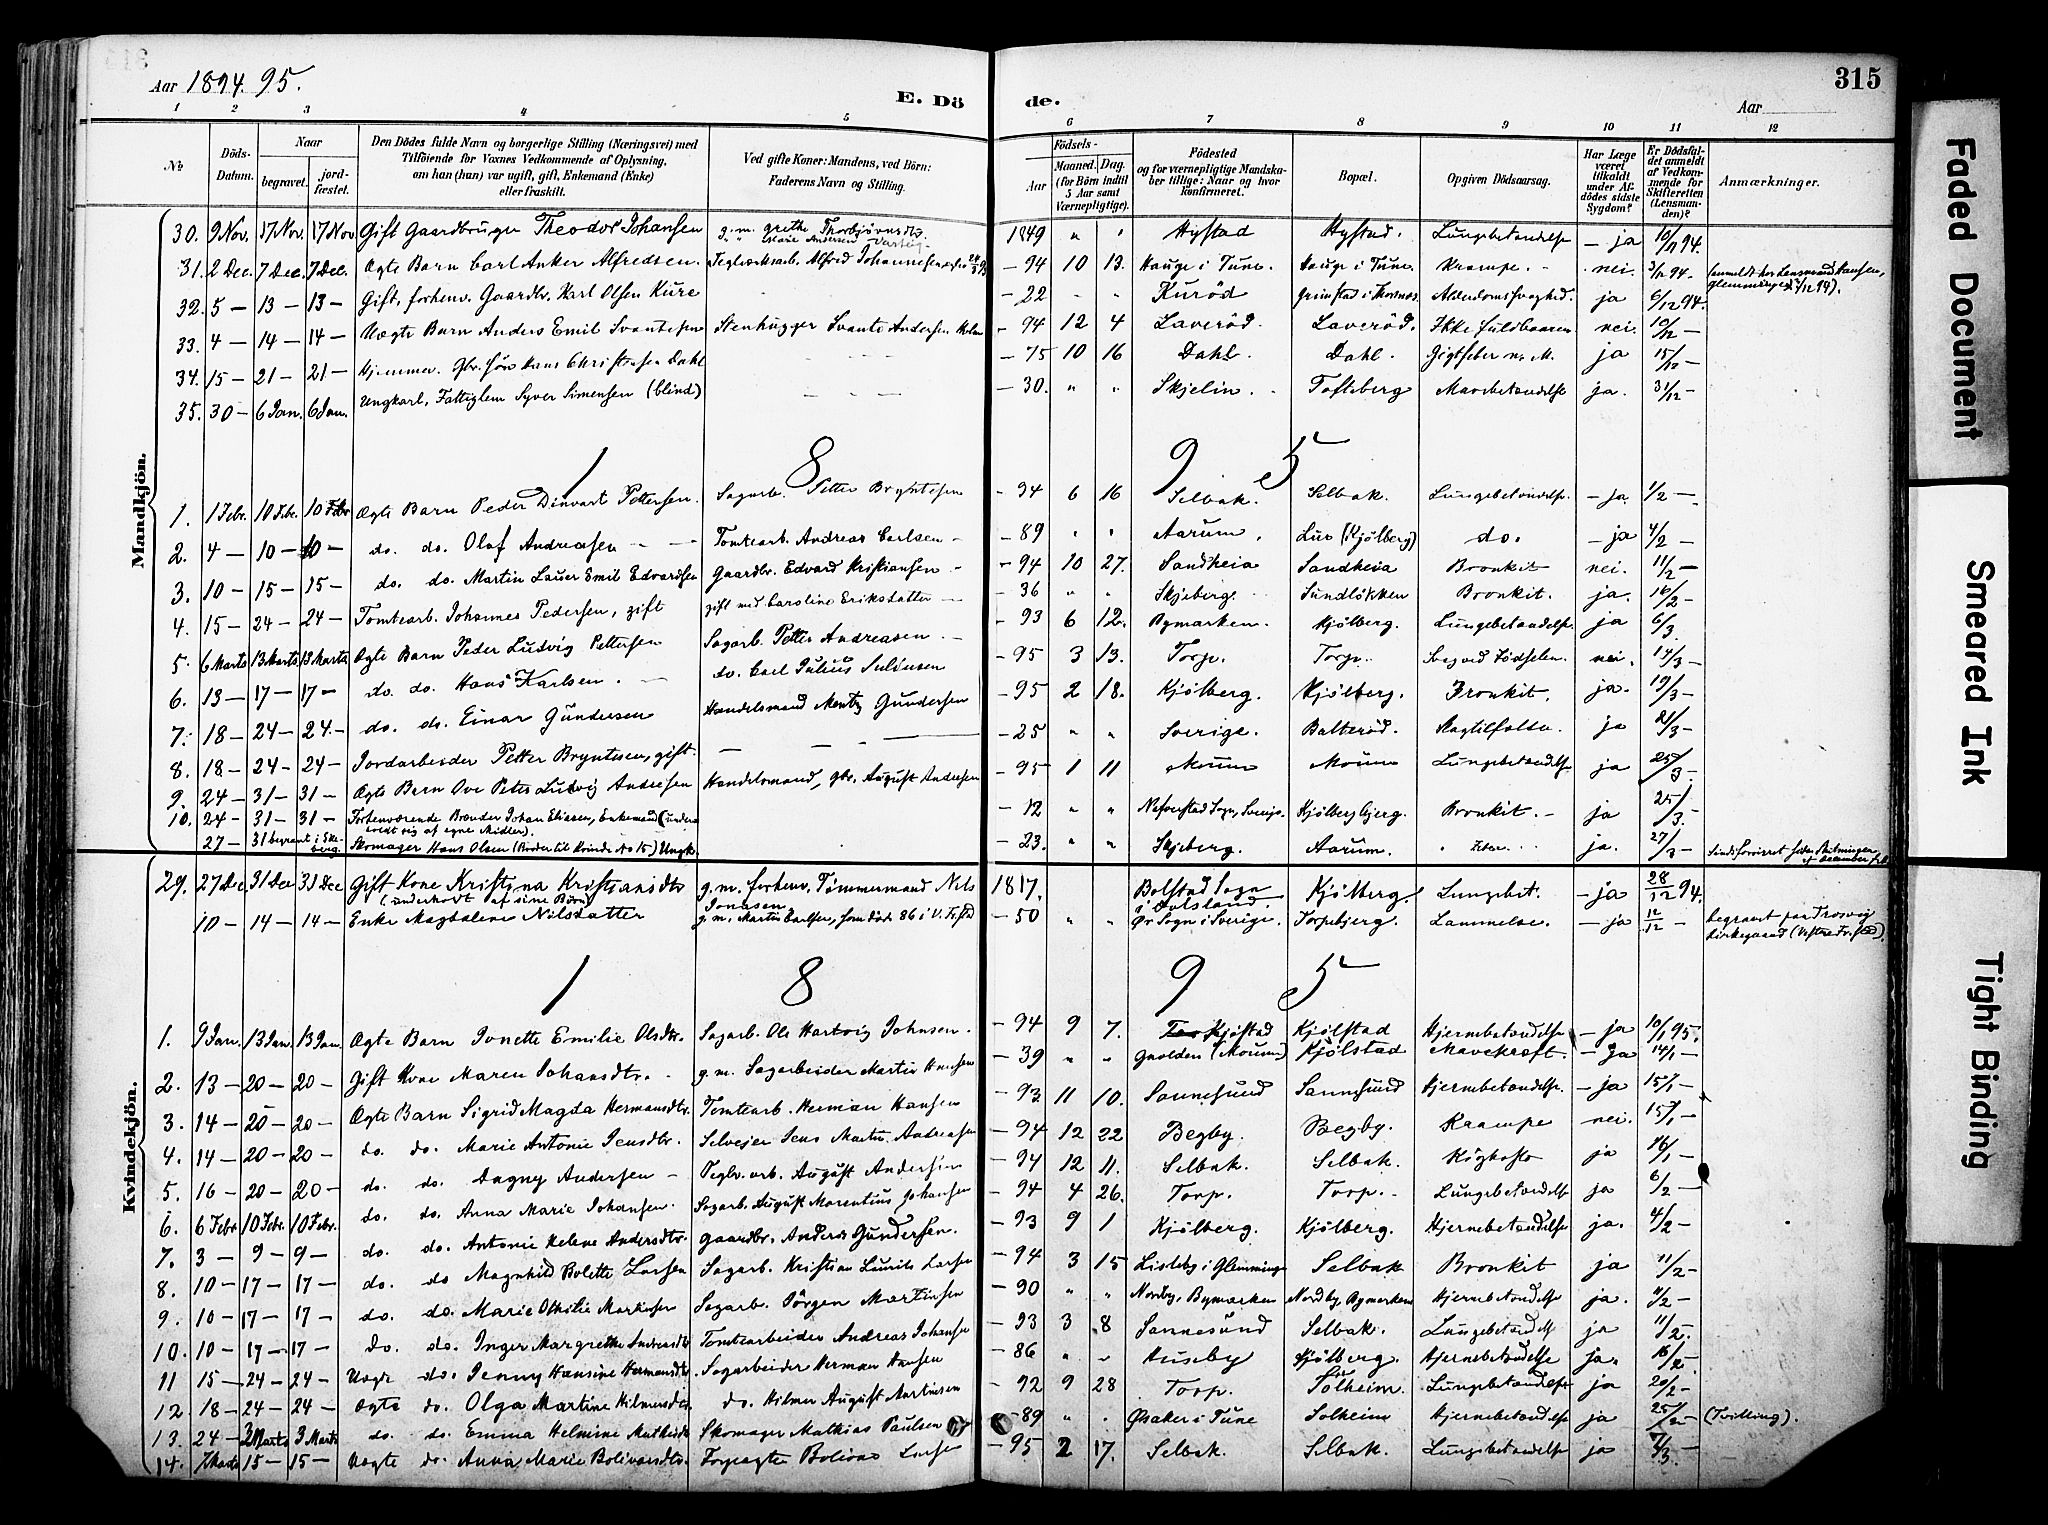 Aar 1894. 95.
E. Dö de.
315
Aar
1 2 3 4 5 6 7 8 9 10 11 12
No
Döds-Datum.
Naar
begravet.
jordfæstet.
Den Dödes fulde Navn og borgerlige Stilling (Næringsvei) med
Tilföiende for Voxnes Vedkommende af Oplysning,
om han (hun) var ugift, gift, Enkemand (Enke)
eller fraskilt.
Ved gifte Koner: Mandens, ved Börn:
Faderens Navn og Stilling.
Födsels-
Aar
Maaned. Dag.
(for Börn indtil 5 Aar samt Værnepligtige).
Födested
og for værnepligtige Mandskaber tillige: Naar og hvor konfirmeret.
Bopæl.
Opgiven Dödsaarsag.
Har Læge været tilkaldt under Afdödes sidste Sygdom?
Er Dödsfaldet anmeldt af Vedkommende for Skifteretten (Lensmanden)?
Anmærkninger.
Mandkjön.
30. 9 Nov. 17 Nov. 17 Nov. Gift Gaardbruger Theodor Johansen g.m. Grethe Thorbjörnsdtr. 1849 " " Hystad Hystad. Lungebetændelse – ja 94.
31. 2 Dec. 7 Dec. 7 Dec. Ægte Barn Carl Anker Alfredsen. Teglværksarb. Alfred Johannesen – 94 10 13. Hauge i Tune. Hauge i Tune. Krampe. – nei. 94. (anmeldt hos Lensmand Hansen, Glemminge 12 94).
32. 5 – 13 – 13 – Gift, forhenv. Gaardbr. Karl Olsen Kure – 22 Kuröd Grimstad i Alderdomssvaghed. ja 6/12 94.
33. 4 – 14 – 14 – Uægte Barn Anders Emil Svantesen Stenhugger Svante Andersen – 94 12 4 Laveröd. Laveröd. Ikke fuldbaaren nei. 10/12 –
34. 15 – 21 – 21 – Hans Christensen Dahl – 75 10 16 Dahl. Dahl. Gigtfeber ja 15/12 –
35. 30 – 6 Jan. 6 Jan. Ungkarl, Fattiglem Syver Simensen (blind) – 30. " " Skjelin. Tofteberg Mavebetændelse ja. 31/12 –
1 8 9 5
1. 1 Febr. 10 Febr. 10 Febr. Ægte Barn Peder Dinvart Pettersen. Sagarb. Petter Bryntesen – 94 6 16 Selbak. Selbak. Lungebetændelse – ja 1/2 –
2. 4 – 10 – 10 – do. do. Olaf Andreasen – – Tomtearb. Andreas Carlsen – – 89 " " Aarum. Lur (Kjölberg) do. – ja 4/2 –
3. 10 – 15 – 15 – do. do. Martin Lauer Emil Edvardsen Gaardbr. Edvard Kristiansen – – 94 10 27. Sandheia Sandheia Bronkit nei. 11/2 –
4. 15 – 24 – 24 – Tomtearb. Johannes Pedersen, gift gift med Caroline Eriksdatter – – 36 " " Skjeberg. Sundlökken Bronkit. ja. 16/2 –
5. 6 Marts 13 Marts 13 Marts Ægte Barn Peder Ludvig Pettersen Sagarb. Petter Andreasen. – – 93 6 12. Bymarken. Kjölberg. Lungebetændelse ja 6/3.
6. 13 – 17 – 17 – do. do. Hans Karlsen. – do. Carl Julius – 95 3 13. Torp. Torp. Svag ved Födselen nei. 14/3 –
7. 18 – 24 – 24. – do. do. Einar Gundersen Handelsmand Mentz Gundersen – 95 2 18. Kjölberg. Kjölberg. Bronkit. ja. 19/3 –
8. 18 – 24 – 24 – Jordarbeider Petter Bryntesen, gift. – – – – 25 " " Sverige. Balteröd. Slagtilfælde ja 21/3 –
9. 24 – 31 – 31 – Ægte Barn Ove Peter Ludvig Andresen Handelsmand, gbr. August Andresen – 95 1 11 Moum Moum Lungebetændelse ja 25/3 –
10. 24 – 31 – 31 – Forhenværende Brænder Johan Eliasen, Enkemand (underholdt sig af egne Midler). – 12 " " Sogn, Sverige. Kjölbergbjerg. Bronkit. – ja 25/3.
27 – 31 begravet i Ekeberg. Skomager Hans Olsen (Broder til Kvinde No 15) Ungk. – 23. " " Skjeberg. Aarum. ja. 27/3 –
Kvindekjön.
29. 27 Dec 31 Dec 31 Dec Gift Kone Kristina Kristiansdtr (underholdt af sine Börn) g.m. forhenv. Tömmermand Nils Jonasen. 1817. Bolstad Sogn i Dalsland. Kjölberg. Lungebet. – ja 28/12 94.
10 – 14 – 14 – Enke Magdalene Nilsdatter g.m. Martin Carlsen, som döde 86 i V. Fr.stad – 50 " " Ör Sogn i Sverige. Torpebjerg. Lammelse. – ja 12/12 – begravet paa Trosvig Kirkegaard (Vestre Fr.stad).
1 8 9 5
1. 9 Jan. 13 Jan. 13 Jan. Ægte Barn Jonette Emilie Olsdtr. Sagarb. Ole Hartvig Johnsen. – 94 9 7. Kjölstad Kjölstad Hjernebetændelse – ja 10/1 95.
2. 13 – 20 – 20 – Gift Kone Maren Johansdtr. – g.m. Sagarbeider Martin Hansen – 39 " " (Moum) Kjölstad Mavekræft. – ja 14/1 –
3. 14 – 20 – 20 – Ægte Barn Sigrid Magda Hermansdtr. Tomtearb. Herman Hansen – 93. 11 10. Sannesund Sannesund Hjernebetændelse. – ja 15/1 –
4. 14 – 20 – 20 – do. do. Marie Antonie Jensdtr. Selveier Jens Martin Andreasen – 94 12 22 Begby. Begby. Krampe nei. 15/1 –
5. 16 – 20 – 20 – do. do. Dagny Andersen – Teglv.arb. August Andersen – 94 12 11. Selbak. Selbak. Kighoste ja 16/1 –
6. 6 Febr. 10 Febr. 10 Febr. do. do. Anna Marie Johansen. Sagarb. August Marentius Johansen – 94 4 26. Torp. Torp. – Lungebetændelse ja 6/2 –
7. 3 – 9 – 9 – do. do. Antonie Helene Andersdtr. Gaardbr. Anders Gundersen. – 93 9 1 Kjölberg. Kjölberg. Hjernebetændelse ja. 4/2 –
8. 10 – 17 – 17 – do. do Magnhild Bolette Larsen Sagarb. Kristian Laurits Larsen – 94 3 15 Lisleby i Glemminge Selbak Bronkit ja 11/2 –
9. 10 – 17 – 17 – do. do. Marie Othilie Martinsen Sagarb. Jörgen Martinsen – 90 " " Nordby, Bymarken Nordby, Bymarken Hjernebetændelse ja. 11/2 –
10. 10 – 17 – 17 – do. do. Inger Margrethe Andreasdtr Tomtearbeider Andreas Johansen – 93 3 8 Sannesund Selbak. Lungebetændelse ja 11/2.
11 15 – 24 – 24 – Uægte do. Jenny Hansine Hermansdtr. Sagarbeider Herman Hansen – 86 " " Huseby Kjölberg. Hjernebetændelse ja. 16/2 –
12 18 – 24 – 24 – Ægte do. Olga Martine Hilmersdtr. do. Hilmer August Martinsen – 92 9 28 Torp. Solheim. Lungebetændelse ja 20/2 –
13. 24 – 3 Marts 3 Marts do. do. Emma Helmine Mathisdtr Skomager Mathias Paulsen – 89 " " Ösaker i Tune Solheim Hjernebetændelse ja 25/2 – (Tvilling).
14. Marts 15 – 15 – Uægte do. Anna Marie Bolivarsdtr. Forpagter Bolivar Larsen – 95 2 17. Selbak. Selbak. Lungebetændelse ja 7/3. –
Faded Document
Smeared Ink
Tight Binding